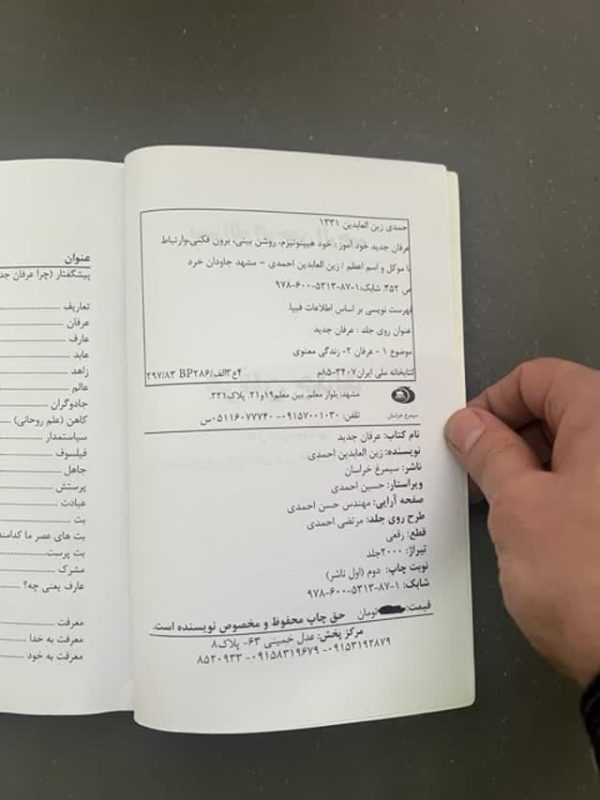 احمدی زین العابدین ۱۳۳۱
عرفان جدید خود آموز: خود هیپنوتیزم، روشن بینی، برون فکنی، وارتباط
با موکل و اسم اعظم / زین العابدین احمدی - مشهد جاودان خرد
۳۵۲ ص. شابک: ۱-۸۷-۵۳۱۳-۶۰۰-۹۷۸
فهرست نویسی بر اساس اطلاعات فیپا.
عنوان روی جلد : عرفان جدید
موضوع ۱- عرفان ۲- زندگی معنوی
کتابخانه ملی ایران ۳۴۰۷-۸۵م
۴ع۳الف/BP۲۸۶ ۲۹۷/۸۳
مشهد، بلوار معلم، بین معلم۱۹و۲۱، پلاک۳۳۱.
تلفن: ۰۹۱۵۷۰۰۱۰۳۰- ۰۵۱۱۶۰۷۷۷۴۰س
سیمرغ خراسان
نام کتاب: عرفان جدید
نویسنده: زین العابدین احمدی
ناشر: سیمرغ خراسان
ویراستار: حسین احمدی
صفحه آرایی: مهندس حسن احمدی
طرح روی جلد: مرتضی احمدی
قطع: رقعی
تیراژ: ۲۰۰۰جلد
نوبت چاپ: دوم (اول ناشر)
شابک: ۱-۸۷-۵۳۱۳-۶۰۰-۹۷۸
قیمت: تومان حق چاپ محفوظ و مخصوص نویسنده است.
مرکز پخش: عدل خمینی ۶۳- پلاک۸
۰۹۱۵۳۱۹۲۸۷۹- ۰۹۱۵۸۳۱۹۶۷۹- ۸۵۲۰۹۳۳
عنوان
پیشگفتار (چرا عرفان جد
تعاریف
عرفان
عارف
عابد
زاهد
عالم
جادوگران
کاهن (علم روحانی)
سیاستمدار
فیلسوف
جاهل
پرستش
عبادت
بت
بت های عصر ما کدامند
بت پرست
مشرک
عارف یعنی چه؟
معرفت
معرفت به خدا
معرفت به خود